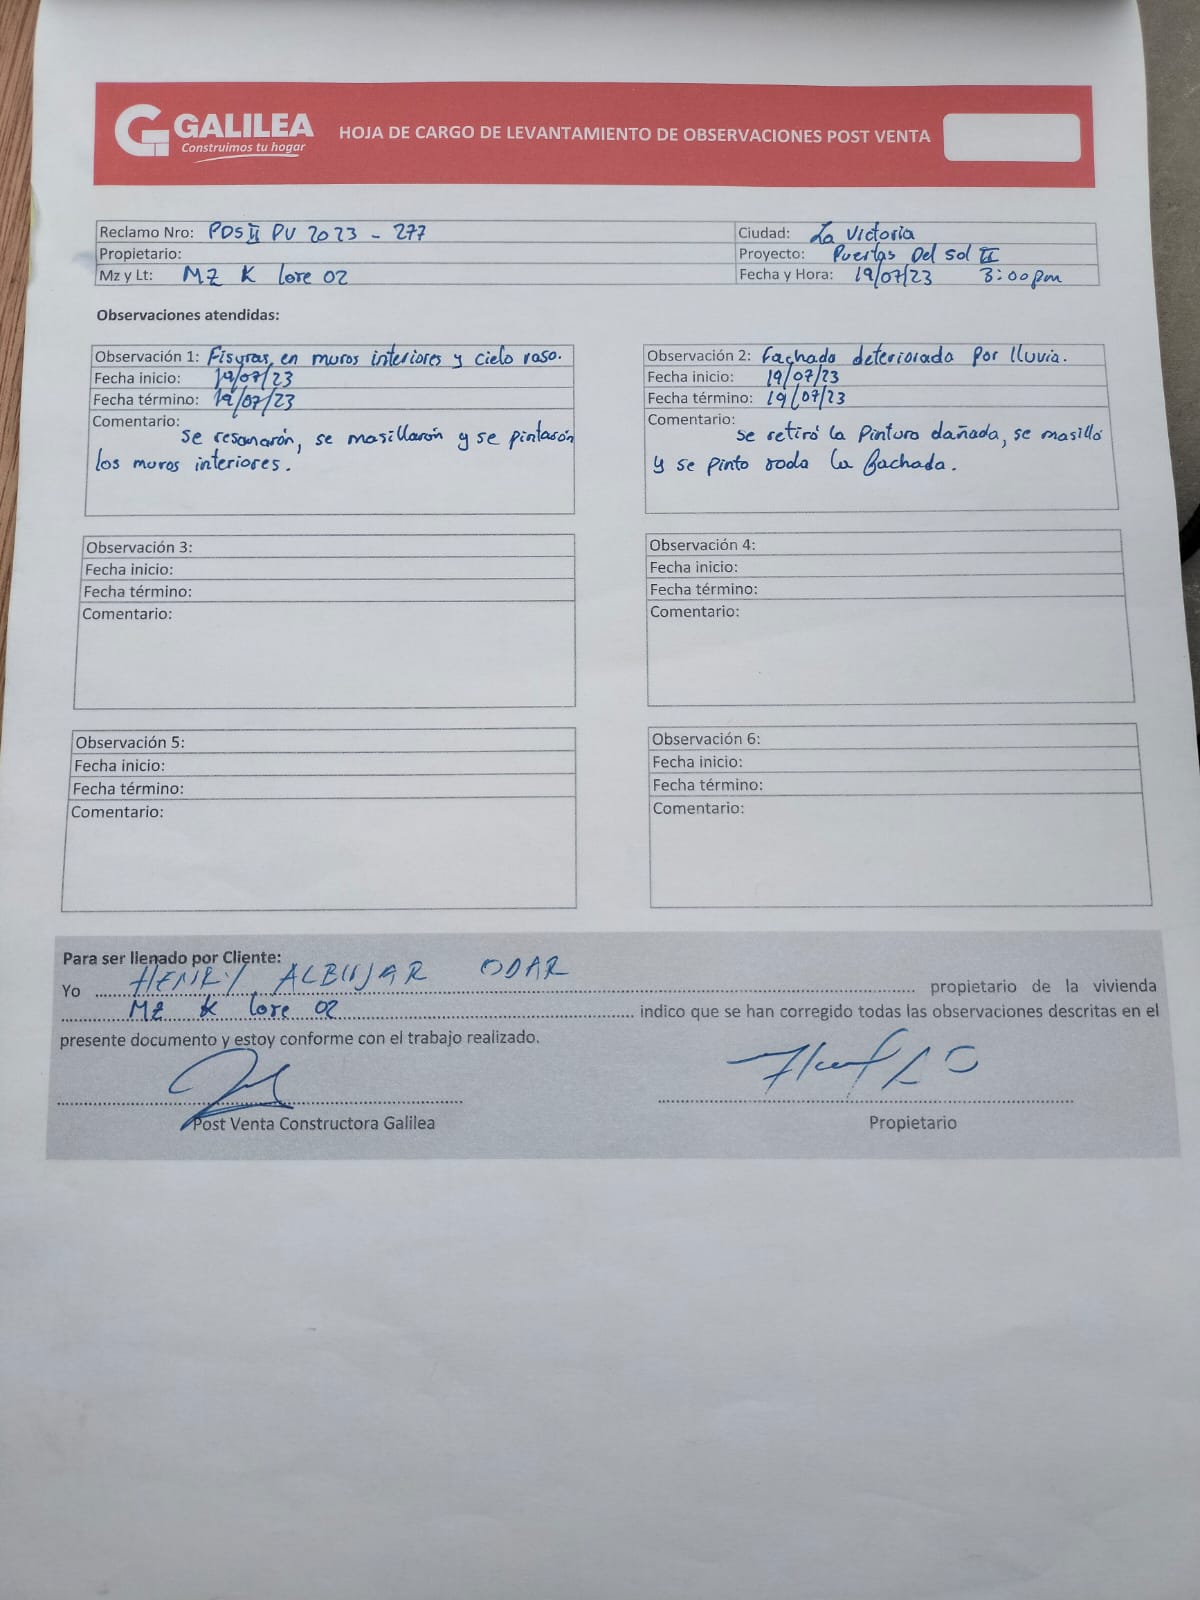 GALILEA
Construimos tu hogar
HOJA DE CARGO DE LEVANTAMIENTO DE OBSERVACIONES POST VENTA
Reclamo Nro: PDS II PV 2023 - 277
Ciudad: La Victoria
Propietario:
Proyecto: Puertas Del Sol II
Mz y Lt: MZ K lote 02
Fecha y Hora: 19/07/23 3:00pm
Observaciones atendidas:
Observación 1: Fisuras en muros interiores y cielo raso.
Fecha inicio: 19/07/23
Fecha término: 19/07/23
Comentario:
se resanarón, se masillarón y se pintarón
los muros interiores.
Observación 2: fachada deteriorada por lluvia.
Fecha inicio: 19/07/23
Fecha término: 19/07/23
Comentario:
se retiró la pintura dañada, se masilló
y se pinto toda la fachada.
Observación 3:
Fecha inicio:
Fecha término:
Comentario:
Observación 4:
Fecha inicio:
Fecha término:
Comentario:
Observación 5:
Fecha inicio:
Fecha término:
Comentario:
Observación 6:
Fecha inicio:
Fecha término:
Comentario:
Para ser llenado por Cliente:
Yo HENRY ALBUJAR ODAR propietario de la vivienda
MZ K lote 02 indico que se han corregido todas las observaciones descritas en el
presente documento y estoy conforme con el trabajo realizado.
Post Venta Constructora Galilea
Propietario